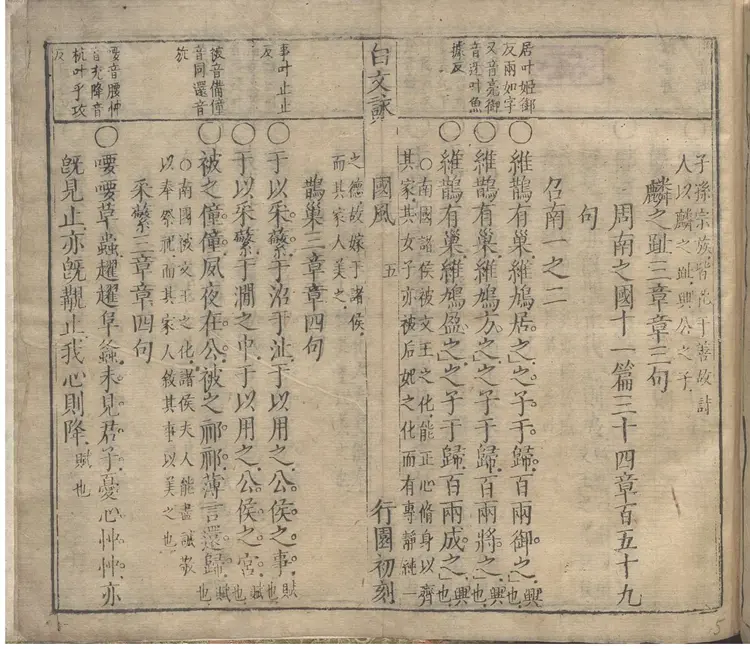 子孫宗族皆化于善故詩
人以麟之趾興公之子
麟之趾三章章三句
周南之國十一篇三十四章百五十九
句
召南一之二
居叶姬御
反兩如字
又音亮御
音迓叶魚
據反
○維鵲有巢維鳩居之之子于歸百兩御之興也
○維鵲有巢維鳩方之之子于歸百兩將之興也
○維鵲有巢維鳩盈之之子于歸百兩成之興也
○南國諸侯被文王之化能正心脩身以齊
其家其女子亦被后妃之化而有專靜純一
白文詩
國風
五
行園初刻
之德故嫁于諸侯
而其家人美之
鵲巢三章章四句
事叶止止
反
○于以采蘩于沼于沚于以用之公侯之事賦也
○于以采蘩于澗之中于以用之公侯之宮賦也
被音備僮
音同還音
旋
○被之僮僮夙夜在公被之祁祁薄言還歸賦也
○南國被文王之化諸侯夫人能盡誠敬
以奉祭祀而其家人敘其事以美之也
采蘩三章章四句
喓音腰忡
音充降音
杭叶乎攻
反
○喓喓草蟲趯趯阜螽未見君子憂心忡忡亦
旣見止亦旣覯止我心則降賦也
5